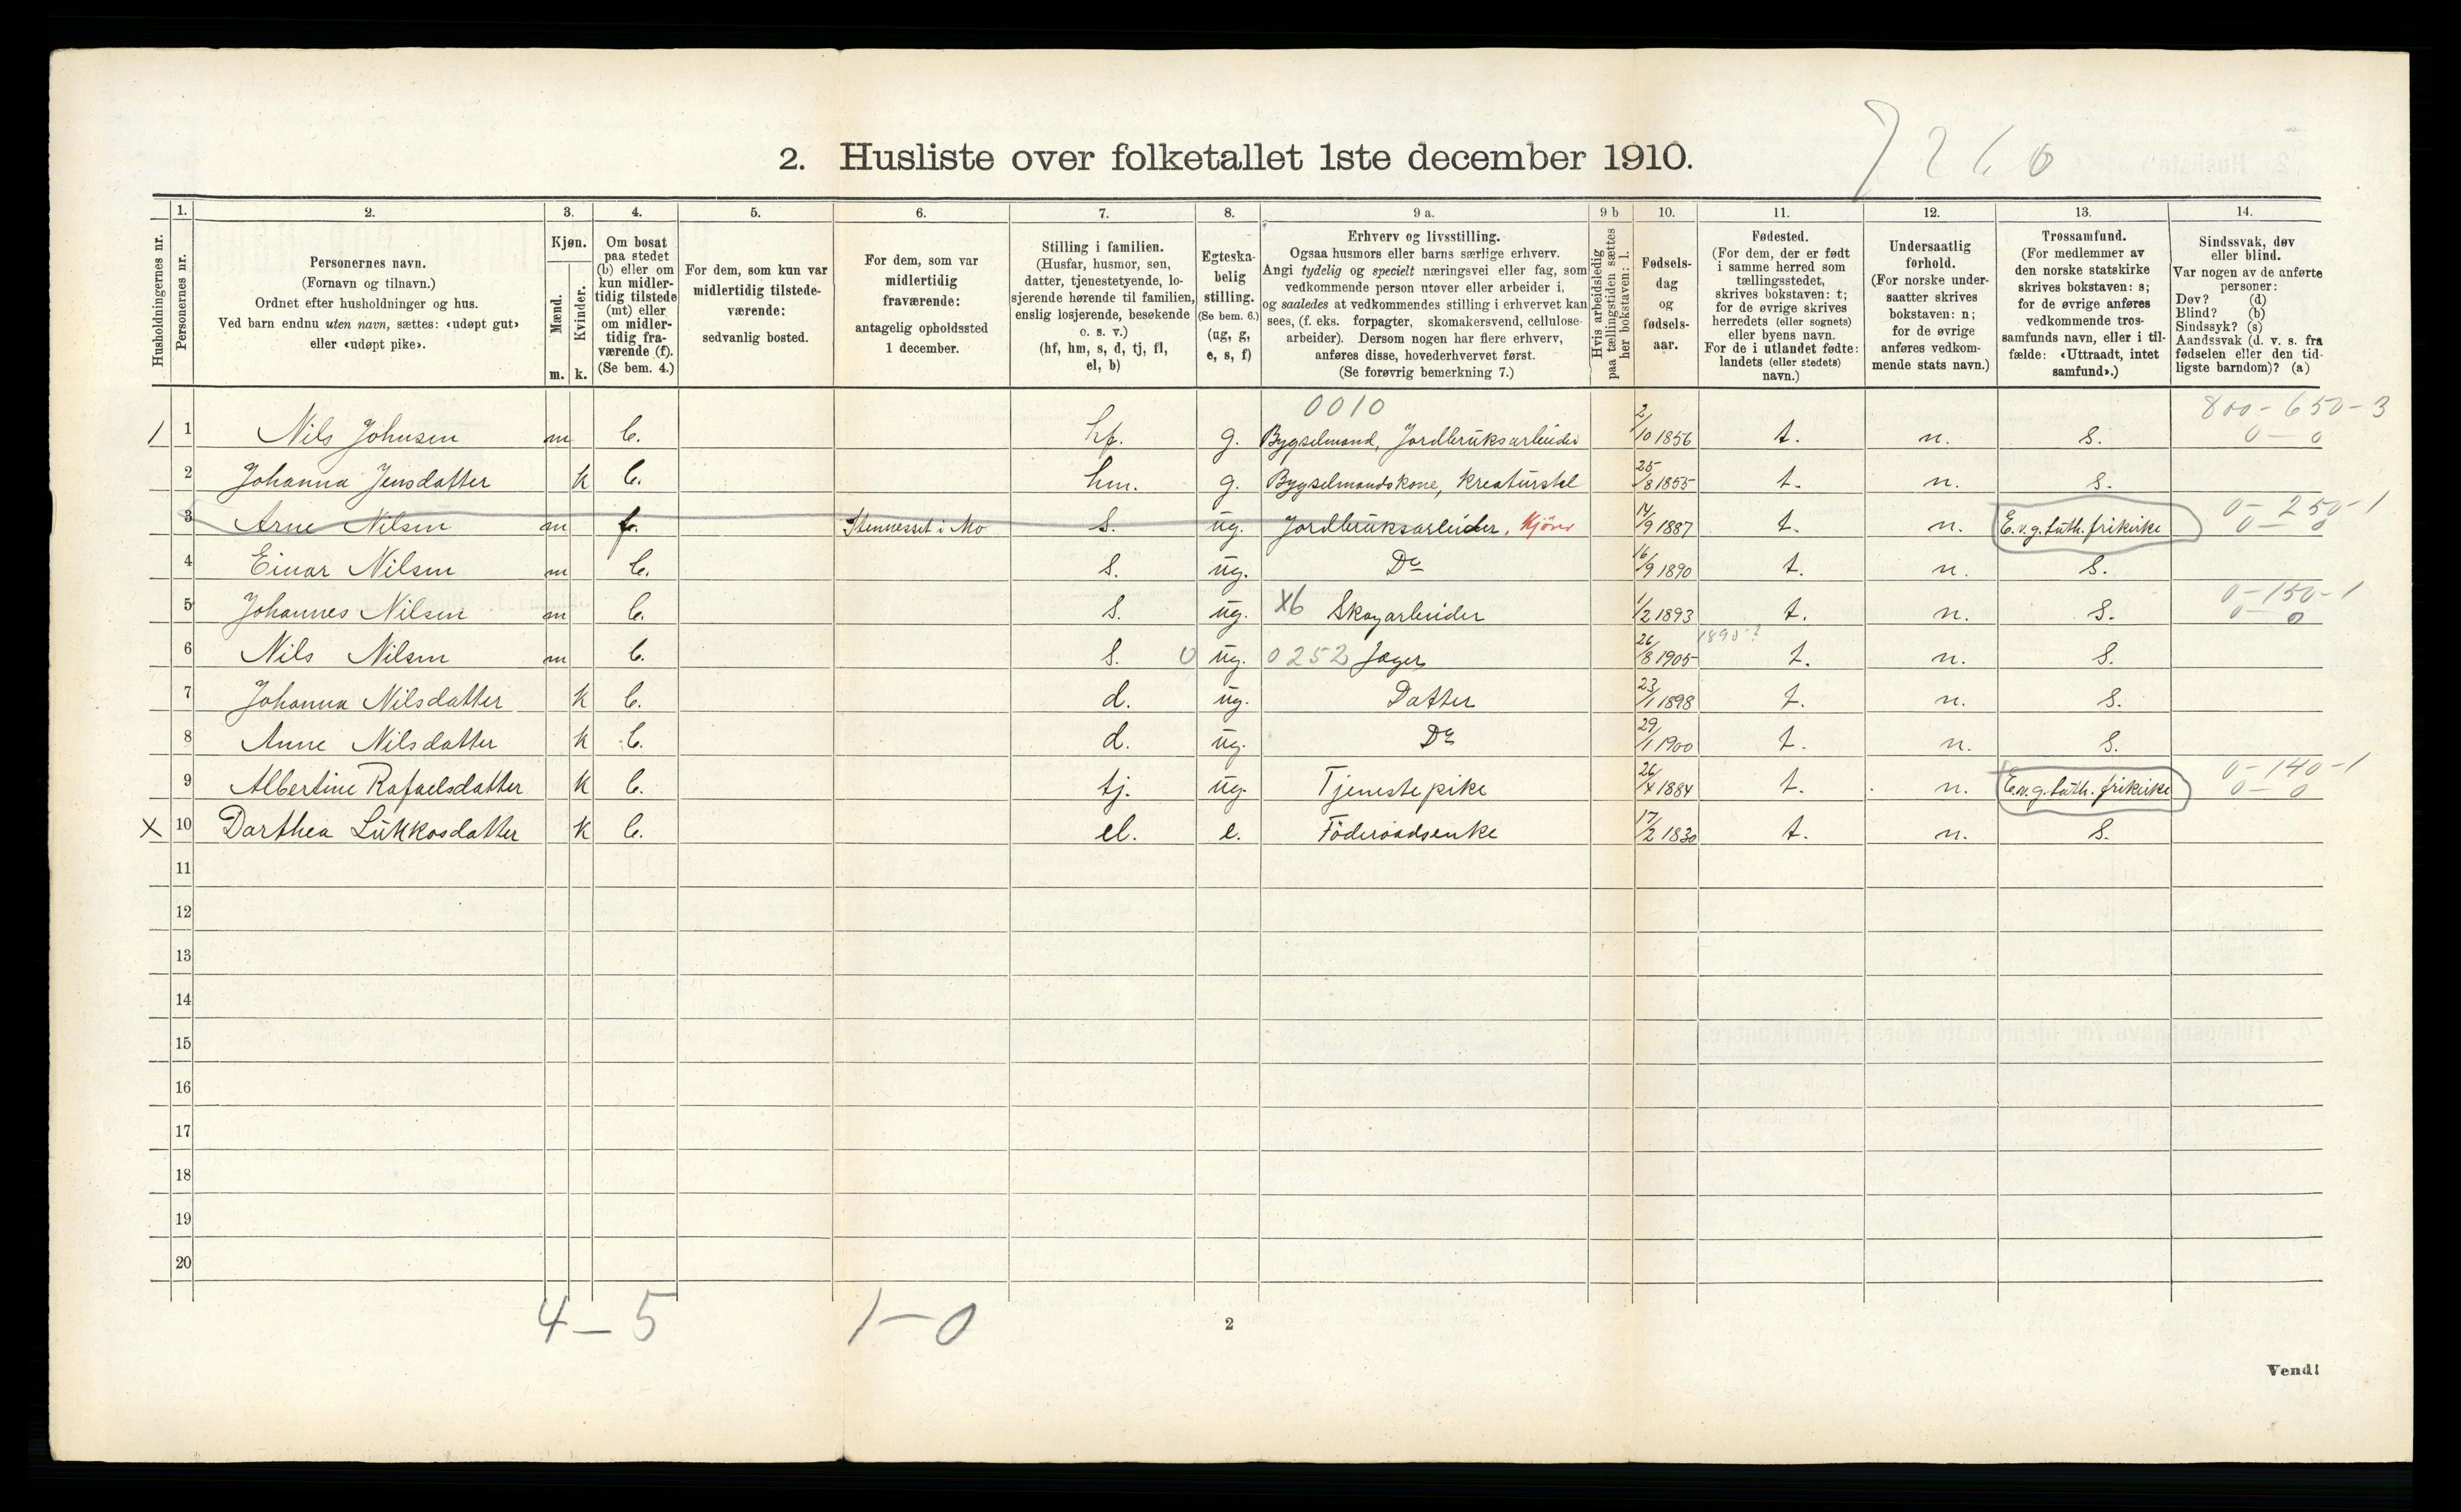 7260
2. Husliste over folketallet 1ste december 1910.
Husholdningernes nr.
1. Personernes nr.
2.
Personernes navn.
(Fornavn og tilnavn.)
Ordnet efter husholdninger og hus.
Ved barn endnu uten navn, sættes: «udøpt gut»
eller «udøpt pike».
3.
Kjøn.
Mænd.
Kvinder.
m. k.
4.
Om bosat
paa stedet
(b) eller om
kun midler-
tidig tilstede
(mt) eller
om midler-
tidig fra-
værende (f).
(Se bem. 4.)
5.
For dem, som kun var
midlertidig tilstede-
værende:
sedvanlig bosted.
6.
For dem, som var
midlertidig
fraværende:
antagelig opholdssted
1 december.
7.
Stilling i familien.
(Husfar, husmor, søn,
datter, tjenestetyende, lo-
sjerende hørende til familien,
enslig losjerende, besøkende
o. s. v.)
(hf, hm, s, d, tj, fl,
el, b)
8.
Egteska-
belig
stilling.
(Se bem. 6.)
(ug, g,
e, s, f)
9 a.
Erhverv og livsstilling.
Ogsaa husmors eller barns særlige erhverv.
Angi tydelig og specielt næringsvei eller fag, som
vedkommende person utøver eller arbeider i,
og saaledes at vedkommendes stilling i erhvervet kan
sees, (f. eks. forpagter, skomakersvend, cellulose-
arbeider). Dersom nogen har flere erhverv,
anføres disse, hovederhvervet først.
(Se forøvrig bemerkning 7.)
9 b
Hvis arbeidsledig
paa tællingstiden sættes
her bokstaven: l.
10.
Fødsels-
dag
og
fødsels-
aar.
11.
Fødested.
(For dem, der er født
i samme herred som
tællingsstedet,
skrives bokstaven: t;
for de øvrige skrives
herredets (eller sognets)
eller byens navn.
For de i utlandet fødte:
landets (eller stedets)
navn.)
12.
Undersaatlig
forhold.
(For norske under-
saatter skrives
bokstaven: n;
for de øvrige
anføres vedkom-
mende stats navn.)
13.
Trossamfund.
(For medlemmer av
den norske statskirke
skrives bokstaven: s;
for de øvrige anføres
vedkommende tros-
samfunds navn, eller i til-
fælde: «Uttraadt, intet
samfund».)
14.
Sindssvak, døv
eller blind.
Var nogen av de anførte
personer:
Døv? (d)
Blind? (b)
Sindssyk? (s)
Aandssvak (d. v. s. fra
fødselen eller den tid-
ligste barndom)? (a)
0010 800-650-3
1 1 Nils Johnsen m b. hf. g. Bygselmand, Jordbruksarbeider 2/10 1856 t. n. s. 0-0
2 Johanna Jensdatter k b. hm. g. Bygselmandskone, kreaturstel 25/8 1855 t. n. s.
0-250-1
3 Arne Nilsen m f. Stennesset i Mo s. ug. Jordbruksarbeider, 14/9 1887 t. n. E.v.g. luth. frikirke 0-0
4 Einar Nilsen m b. s. ug. Do 16/9 1890 t. n. s.
0-150-1
5 Johannes Nilsen m b. s. ug. X6 Skogarbeider 1/2 1893 t. n. s. 0-0
1895-?
6 Nils Nilsen m b. s. 0 ug. 0252 Jæger 26/8 1905 t. n. s.
7 Johanna Nilsdatter k b. d. ug. Datter 23/1 1898 t. n. s.
8 Anne Nilsdatter k b. d. ug. Do 29/1 1900 t. n. s.
0-140-1
9 Albertine Rafaelsdatter k b. tj. ug. Tjenestepike 26/4 1884 t. n. E.v.g. luth. frikirke 0-0
X 10 Darthea Lukkasdatter k b. el. e. Föderaadsenke 17/2 1830 t. n. s.
11
12
13
14
15
16
17
18
19
20
4-5 1-0
2
Vend!